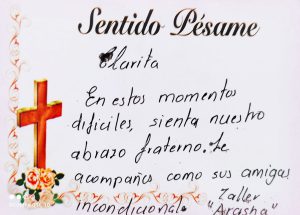 Sentido Pésame
Clarita
En estos momentos
dificiles, sienta nuestro
abrazo fraterno. Le
acompañamos como sus amigas
incondicional. Taller
"Arasha"